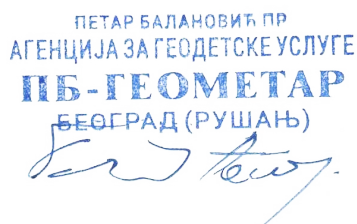 ПЕТАР БАЛАНОВИЋ ПР
АГЕНЦИЈА ЗА ГЕОДЕТСКЕ УСЛУГЕ
ПБ-ГЕОМЕТАР
БЕОГРАД (РУШАЊ)